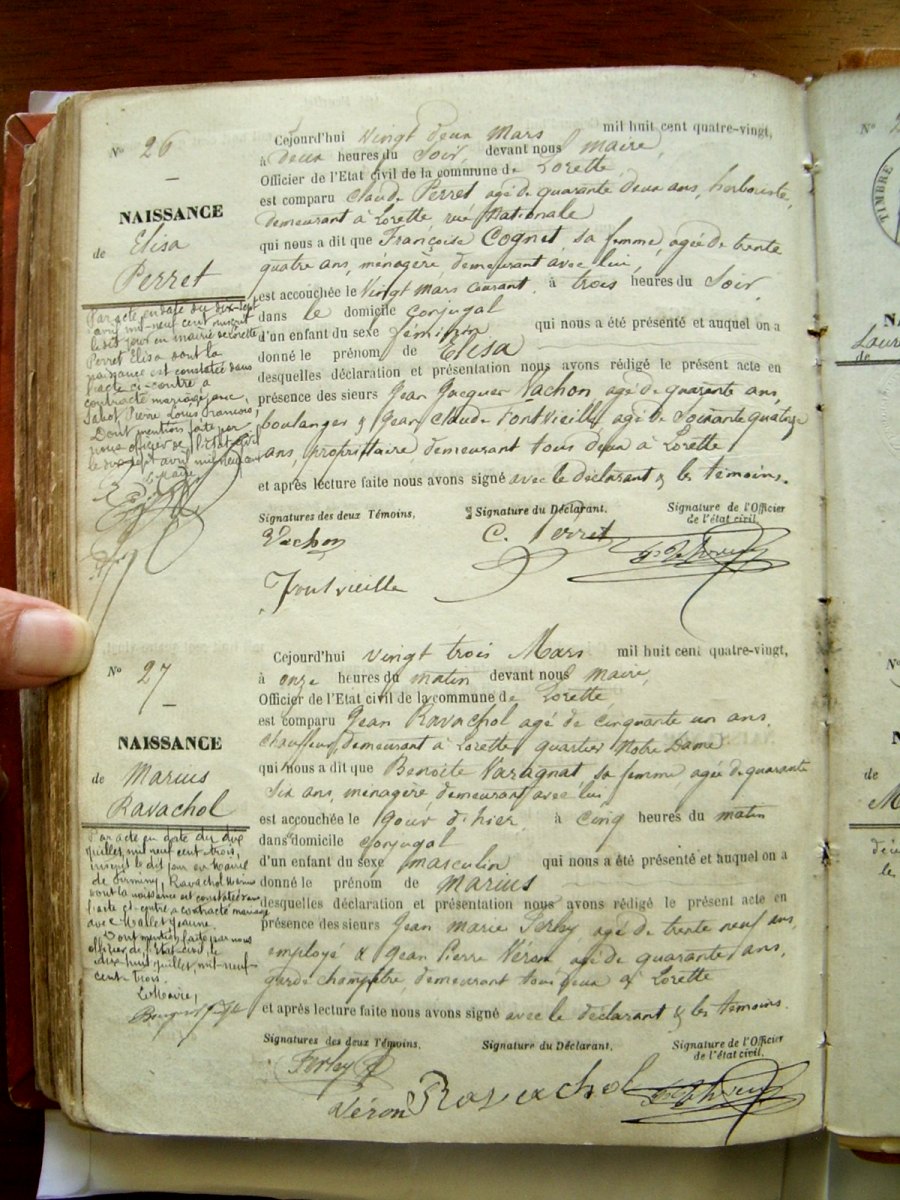 N° 26
NAISSANCE
de Elisa
Perret
Par acte en date du dix-sept
avril mil-neuf cent
le dit jour en mairie de Lorette
Perret Elisa dont la
naissance est constatée dans
l'acte ci-contre a
contracté mariage avec
Sabot Pierre Louis François,
Dont mention faite par
nous officier de l'Etat-civil
le dix-sept avril mil neuf cent
Le Maire
Cejourd'hui Vingt deux Mars mil huit cent quatre-vingt,
à deux heures du Soir, devant nous maire,
Officier de l'Etat civil de la commune de Lorette
est comparu Claude Perret agé de quarante deux ans, herboriste,
demeurant à Lorette rue Nationale
qui nous a dit que Françoise Cognet, sa femme, agée de trente
quatre ans, ménagère, demeurant avec lui,
est accouchée le Vingt mars courant, à trois heures du Soir,
dans le domicile conjugal
d'un enfant du sexe féminin qui nous a été présenté et auquel on a
donné le prénom de Elisa
desquelles déclaration et présentation nous avons rédigé le présent acte en
présence des sieurs Jean Jacques Vachon agé de quarante ans,
boulanger & Jean Claude Fontvieille agé de Soixante quatorze
ans, propriétaire demeurant tous deux à Lorette
et après lecture faite nous avons signé avec le déclarant & les témoins.
Signatures des deux Témoins, Signature du Déclarant. Signature de l'Officier
de l'état civil,
Vachon C. Perret
Fontvieille
N° 27
NAISSANCE
de Marius
Ravachol
Par acte en date du dix
juillet mil neuf cent trois,
inscrit le dit jour en Mairie
de Firminy, Ravachol Marius
dont la naissance est constatée dans
l'acte ci-contre a contracté mariage
avec Mallet Jeanne.
Dont mention faite par nous
officier de l'Etat-civil, le
dix-huit juillet mil-neuf-
cent-trois.
Le Maire,
Cejourd'hui Vingt trois Mars mil huit cent quatre-vingt,
à onze heures du matin devant nous maire,
Officier de l'Etat civil de la commune de Lorette
est comparu Jean Ravachol agé de cinquante un ans,
chauffeur, demeurant à Lorette quartier Notre Dame
qui nous a dit que Benoite Varagnat sa femme, agée de quarante
six ans, ménagère, demeurant avec lui
est accouchée le Jour d'hier, à cinq heures du matin
dans domicile conjugal
d'un enfant du sexe masculin qui nous a été présenté et auquel on a
donné le prénom de Marius
desquelles déclaration et présentation nous avons rédigé le présent acte en
présence des sieurs Jean Marie Ferley agé de trente neuf ans,
employé & Jean Pierre Véron agé de quarante ans,
garde champêtre demeurant tous deux à Lorette
et après lecture faite nous avons signé avec le déclarant & les témoins.
Signatures des deux Témoins, Signature du Déclarant, Signature de l'Officier
de l'état civil,
Ferley
Véron Ravachol
N°
TIMBRE
de